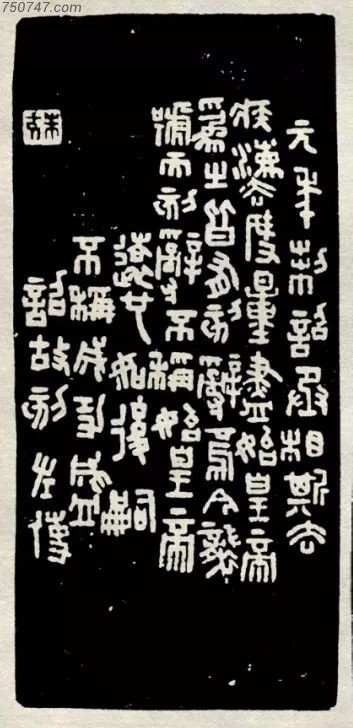 750747.com
元年制詔丞相斯去
疾灋度量盡始皇帝
為之皆有刻辭焉今襲
號而刻辭不稱始皇帝
遠也如後嗣
不稱成功盛
詔故刻左使